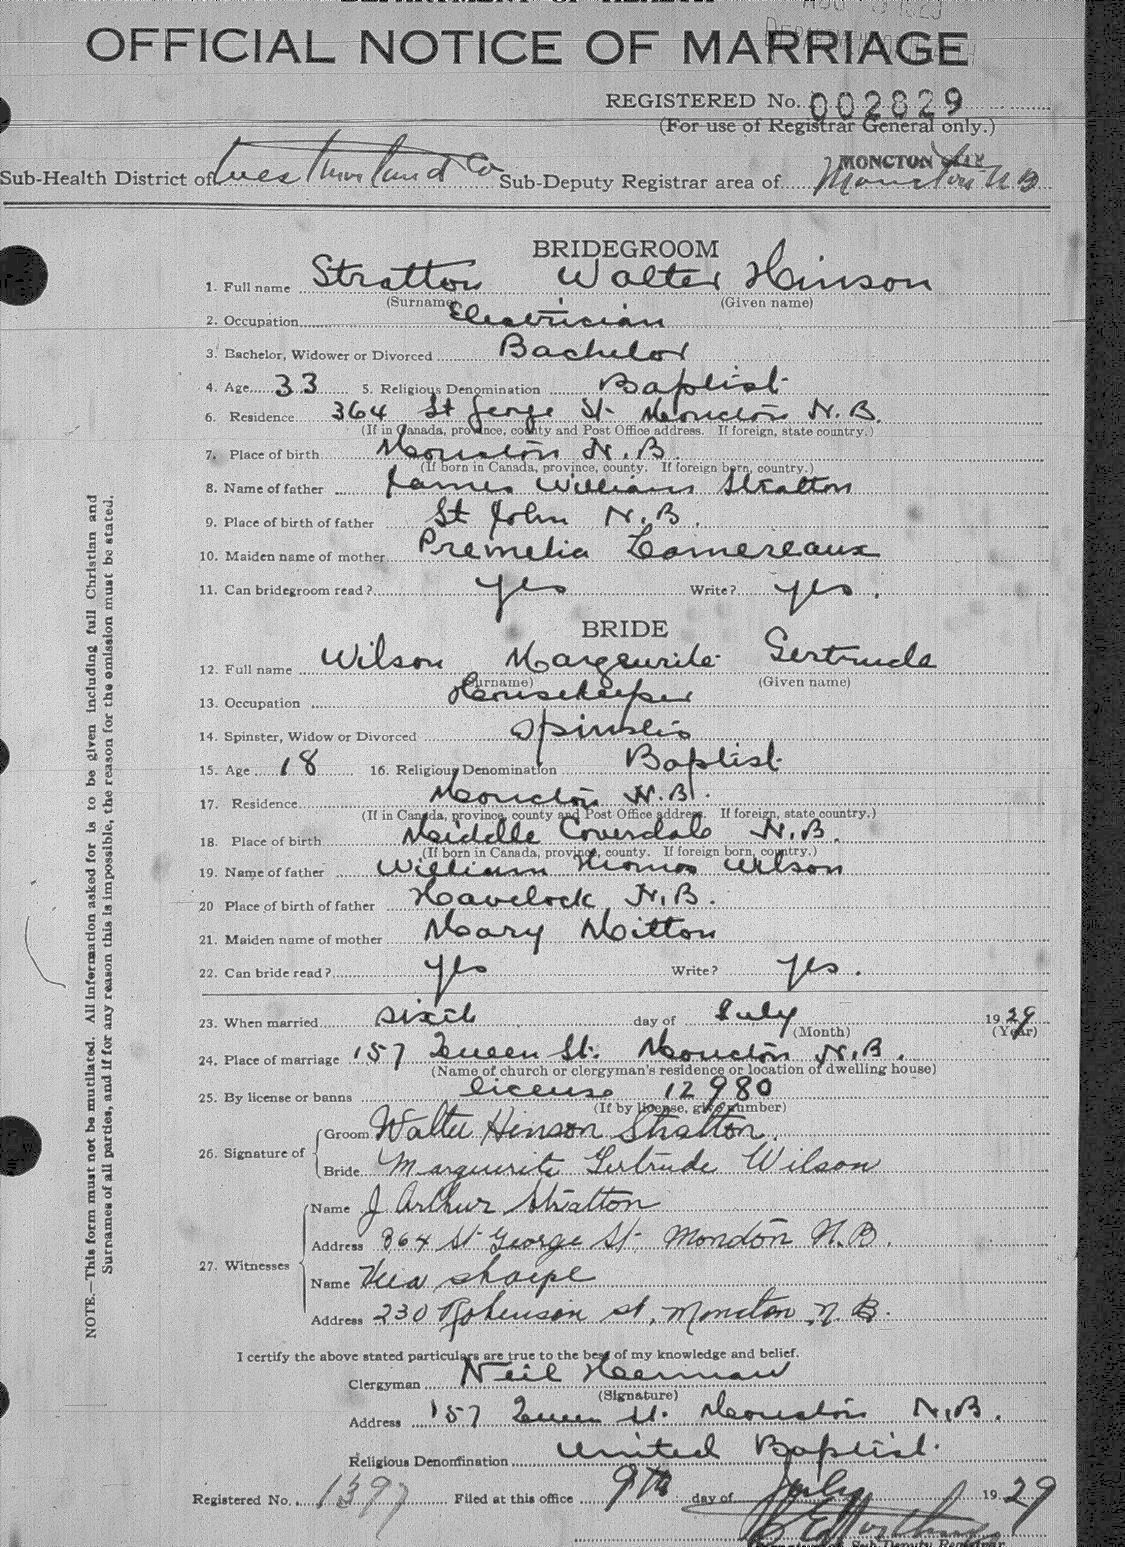 DEPARTMENT OF HEALTH
OFFICIAL NOTICE OF MARRIAGE
REGISTERED No. 002829
(For use of Registrar General only.)
Sub-Health District of Westmorland Co Sub-Deputy Registrar area of MONCTON Moncton N B
BRIDEGROOM
1. Full name Stratton Walter Hinson
(Surname) (Given name)
2. Occupation Electrician
3. Bachelor, Widower or Divorced Bachelor
4. Age 33 5. Religious Denomination Baptist
6. Residence 364 St George St. Moncton N.B.
(If in Canada, province, county and Post Office address. If foreign, state country.)
7. Place of birth Moncton N.B.
(If born in Canada, province, county. If foreign born, country.)
8. Name of father James William Stratton
9. Place of birth of father St John N.B.
10. Maiden name of mother Premelia Lamereaux
11. Can bridegroom read? yes Write? yes.
BRIDE
12. Full name Wilson Marguerite Gertrude
(Surname) (Given name)
13. Occupation Housekeeper
14. Spinster, Widow or Divorced Spinster
15. Age 18 16. Religious Denomination Baptist
17. Residence Moncton N.B.
(If in Canada, province, county and Post Office address. If foreign, state country.)
18. Place of birth Middle Coverdale N.B.
(If born in Canada, province, county. If foreign born, country.)
19. Name of father William Thomas Wilson
20 Place of birth of father Havelock N.B.
21. Maiden name of mother Mary Mitton
22. Can bride read? yes Write? yes.
23. When married sixth day of July 1929
(Month) (Year)
24. Place of marriage 157 Queen St. Moncton N.B.
(Name of church or clergyman's residence or location of dwelling house)
25. By license or banns license 12980
(If by license, give number)
26. Signature of Groom Walter Hinson Stratton.
Bride Marguerite Gertrude Wilson
27. Witnesses Name J Arthur Stratton
Address 364 St George St. Moncton N.B.
Name Sharpe
Address 230 Robinson st, Moncton N.B.
I certify the above stated particulars are true to the best of my knowledge and belief.
Clergyman Neil Herman
(Signature)
Address 157 Queen St. Moncton N.B.
Religious Denomination United Baptist.
Registered No. 1397 Filed at this office 9th day of July 1929
Sub-Deputy Registrar
NOTE.—This form must not be mutilated. All information asked for is to be given including full Christian and
Surnames of all parties, and if for any reason this is impossible, the reason for the omission must be stated.